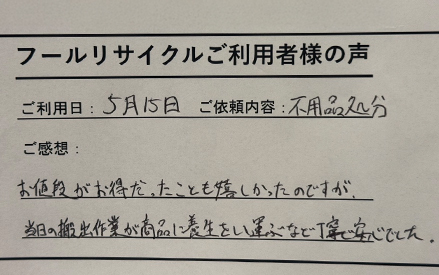 フールリサイクルご利用者様の声
ご利用日：5月15日 ご依頼内容：不用品処分
ご感想：
お値段がお得だったことも嬉しかったのですが、
当日の搬出作業が商品に養生をし、運ぶなど丁寧で安心でした。